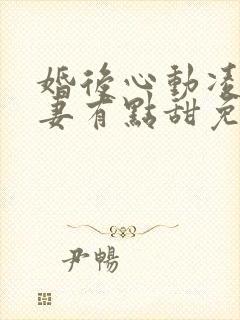 婚後心動凌
妻有點甜免
尹暢